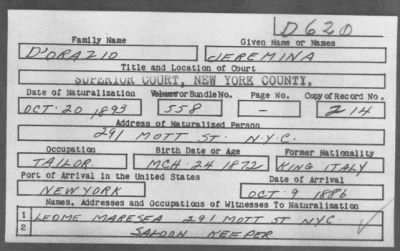 D620
Family Name Given Name or Names
D'ORAZIO JEREMINA
Title and Location of Court
SUPERIOR COURT, NEW YORK COUNTY.
Date of Naturalization Volume or Bundle No. Page No. Copy of Record No.
OCT. 20 1893 558 — 214
Address of Naturalized Person
291 MOTT ST. N.Y.C.
Occupation Birth Date or Age Former Nationality
TAILOR MCH. 24 1872 KING ITALY
Port of Arrival in the United States Date of Arrival
NEW YORK OCT 9 1886
Names, Addresses and Occupations of Witnesses To Naturalization
1 LEOME MARESEA 291 MOTT ST NYC
2 SALOON KEEPER